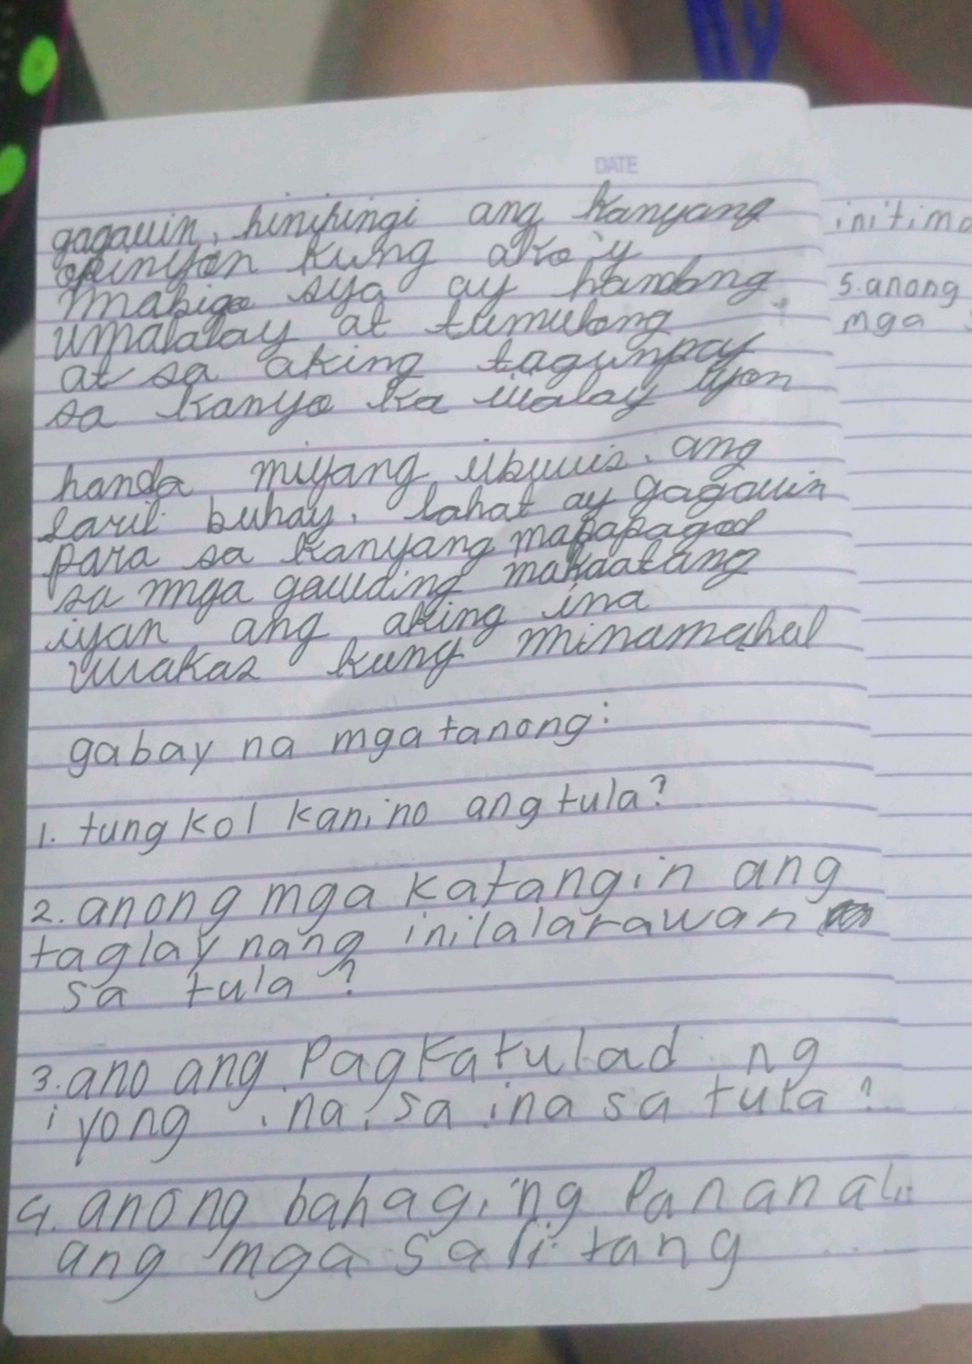 DATE
gagawin, hinihingi ang kanyang
opinyon kung ako'y
mabigo sya ay handang
umalalay at tumulong
at sa aking tagumpay
sa kanya ka iwalay iyon
handa niyang ibuwis. ang
saril buhay. lahat ay gagawin
para sa kanyang mapapagod
sa mga gawding makaatang
iyan ang aking ina
wakas kung minamahal
gabay na mga tanong:
1. tungkol kanino ang tula?
2. anong mga katangin ang
taglay nang inilalarawan
sa tula?
3. ano ang Pagkatulad ng
iyong ina, sa ina sa tula?
4. anong bahaging Pananali
ang mga salitang
5. anong
mga